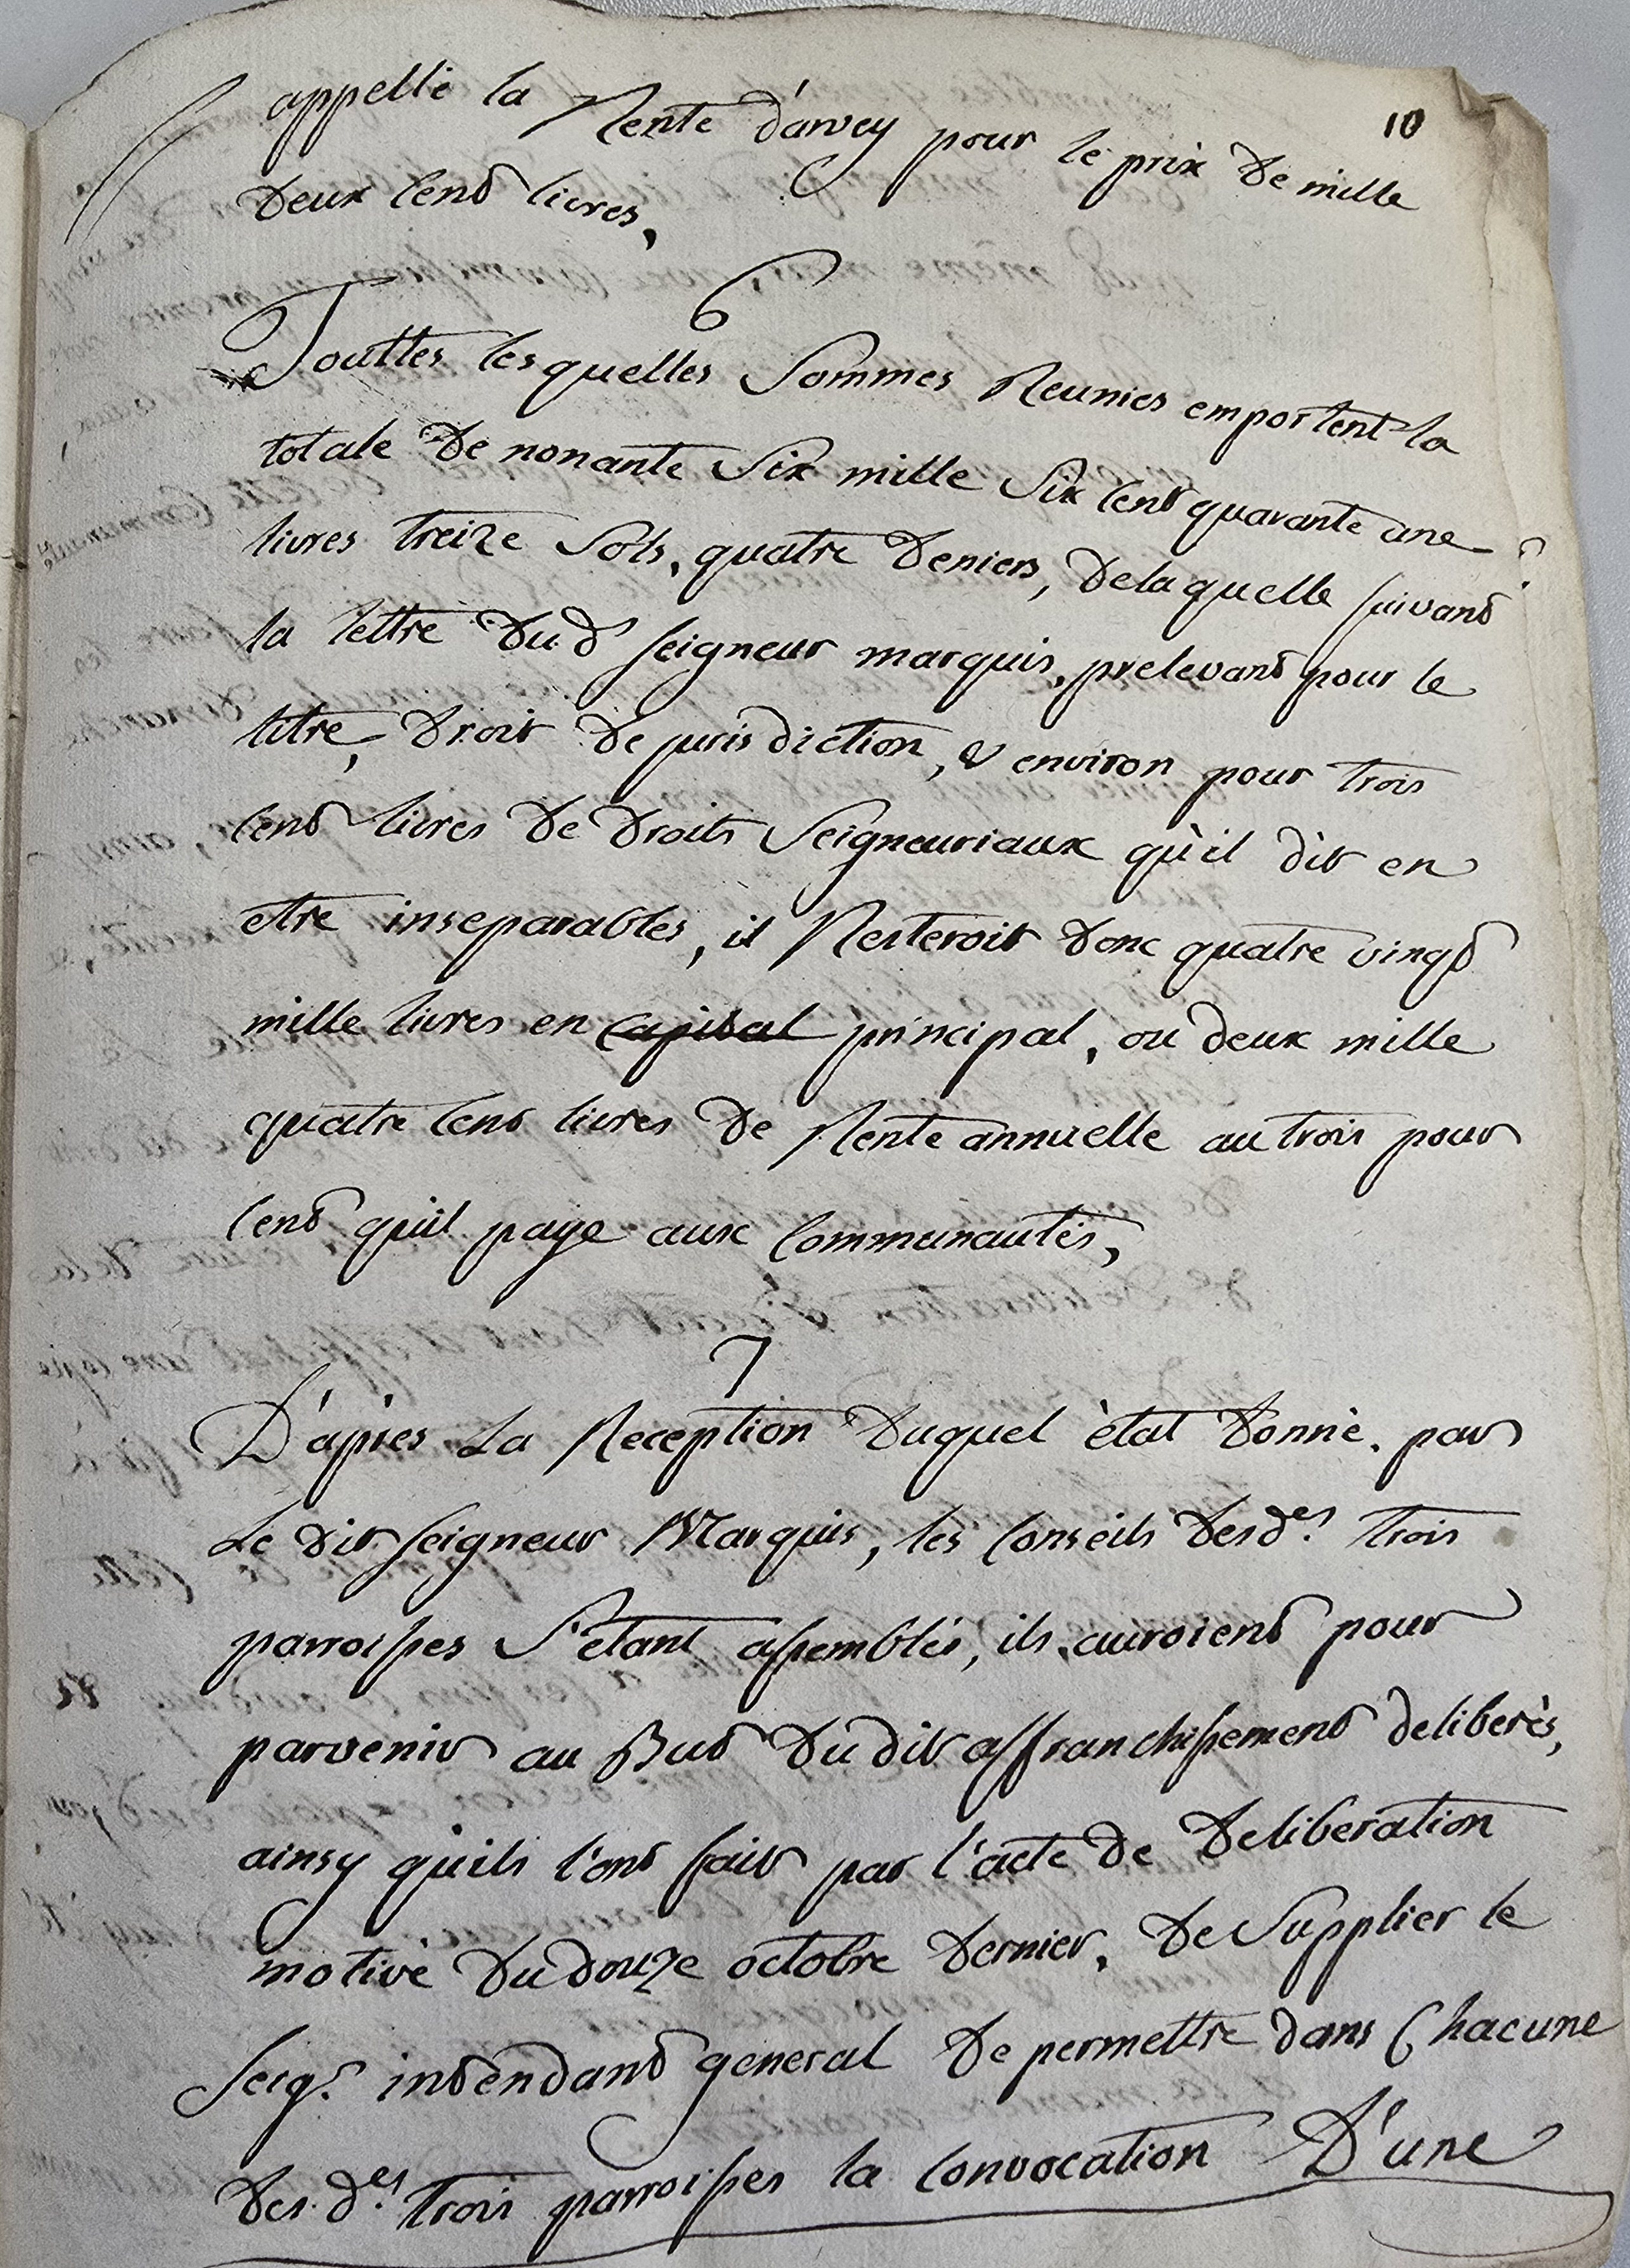 10
appellé la Rente d'arvey pour le prix de mille
deux cend livres,
6
Touttes lesquelles Sommes Reunies emportent la
totale de nonante Six mille Six cend quarante une
livres treize Sols, quatre deniers, de laquelle suivand
la lettre dud seigneur marquis, prelevand pour le
titre, droit de jurisdiction, & environ pour trois
cend livres de droits Seigneuriaux qu'il dit en
etre inseparables, il Resteroit donc quatre vingd
mille livres en capital principal, ou deux mille
quatre cend livres de Rente annuelle au trois pour
cend qu'il paye aux Communautés,
7
D'après La Reception duquel ètat donnè par
Le dit seigneur Marquis, les Conseils desd.es trois
parroisses S'étant assemblés, ils auroiend pour
parvenir au But du dit affranchissemend deliberès,
ainsy qu'ils l'ond fait par l'acte de deliberation
motivè du douze octobre dernier, de Supplier le
Seig.r indendand general de permettre dans Chacune
des d.es trois parroisses la Convocation D'une